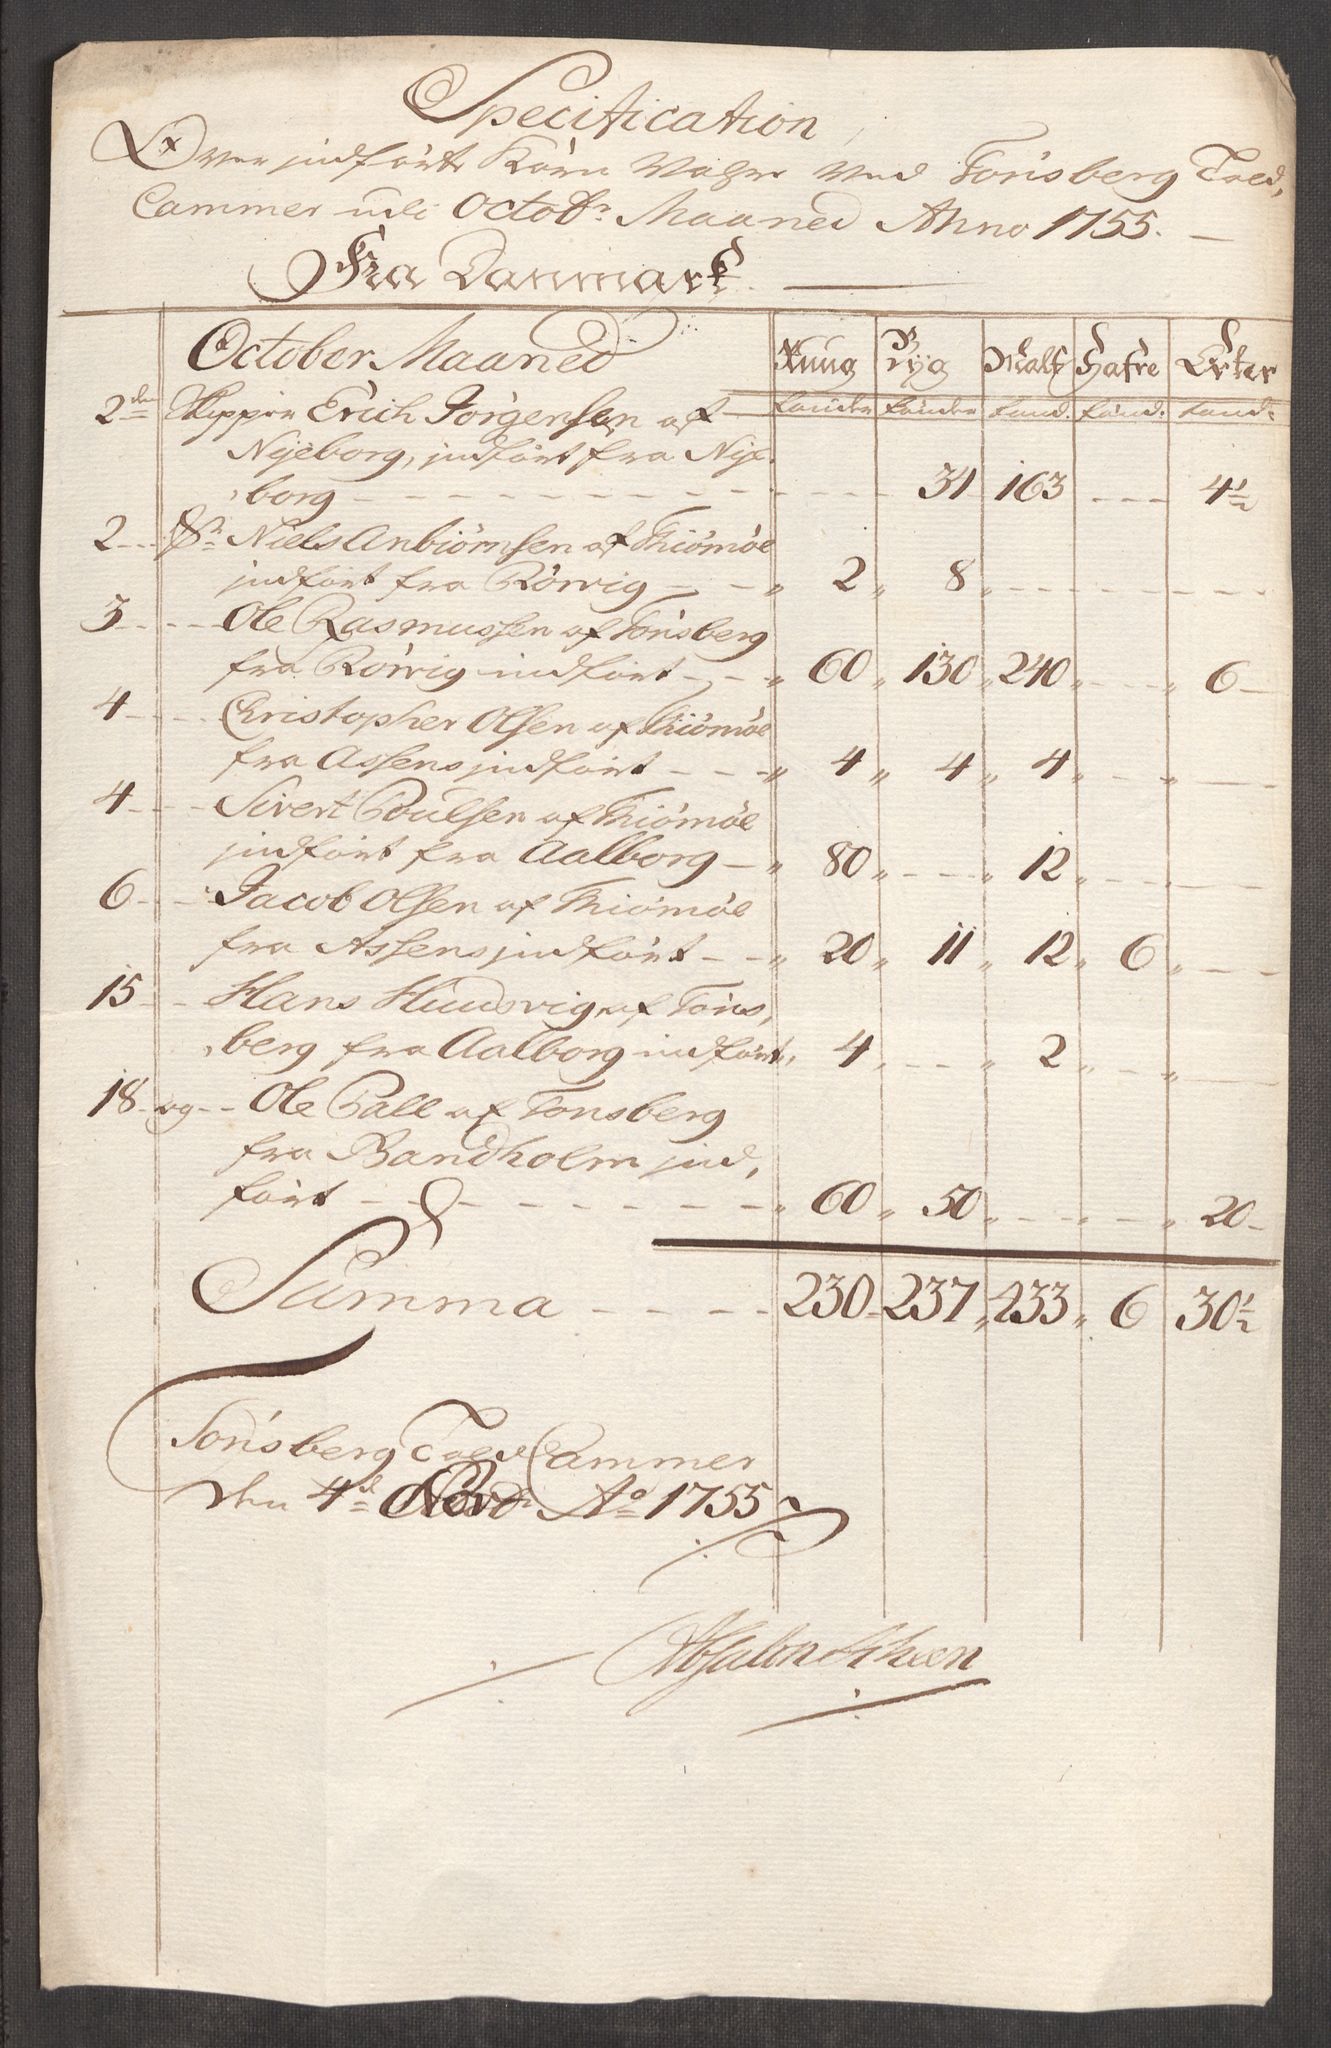 Specification
Over indførte Korn Vahre ved Tønsberg Told,
Cammer udi Octobr: Maaned Anno 1755.
Fra Danmark
October Maaned Ruug Byg Malt Hafre Erter
tønder tønder tønd. tønd. tønd.
2den Skipper Erich Jørgensen af
Nyeborg, indført fra Nye,
borg 34 163 4½
2 Sr Niels Anbiørnsen af Thiømøe
indført fra Rørvig 2 8
3 Ole Rasmussen af Tønsberg
fra Rørvig indført 60 130 240 6
4 Christopher Olsen af Thiømøe
fra Assens indført 4 4 4
4 Sivert Poulsen af Thiømøe
indført fra Aalborg 80 12
6 Jacob Olsen af Thiømøe
fra Assens indført 20 11 12 6
15 Hans Huusvig af Tøns,
berg fra Aalborg indført, 4 2
18 og Ole Pall af Tønsberg
fra Bandholm ind,
ført 60 50 20
Summa 230 237 433 6 30½
Tønsberg Told Cammer
den 4de Novbr Ao 1755